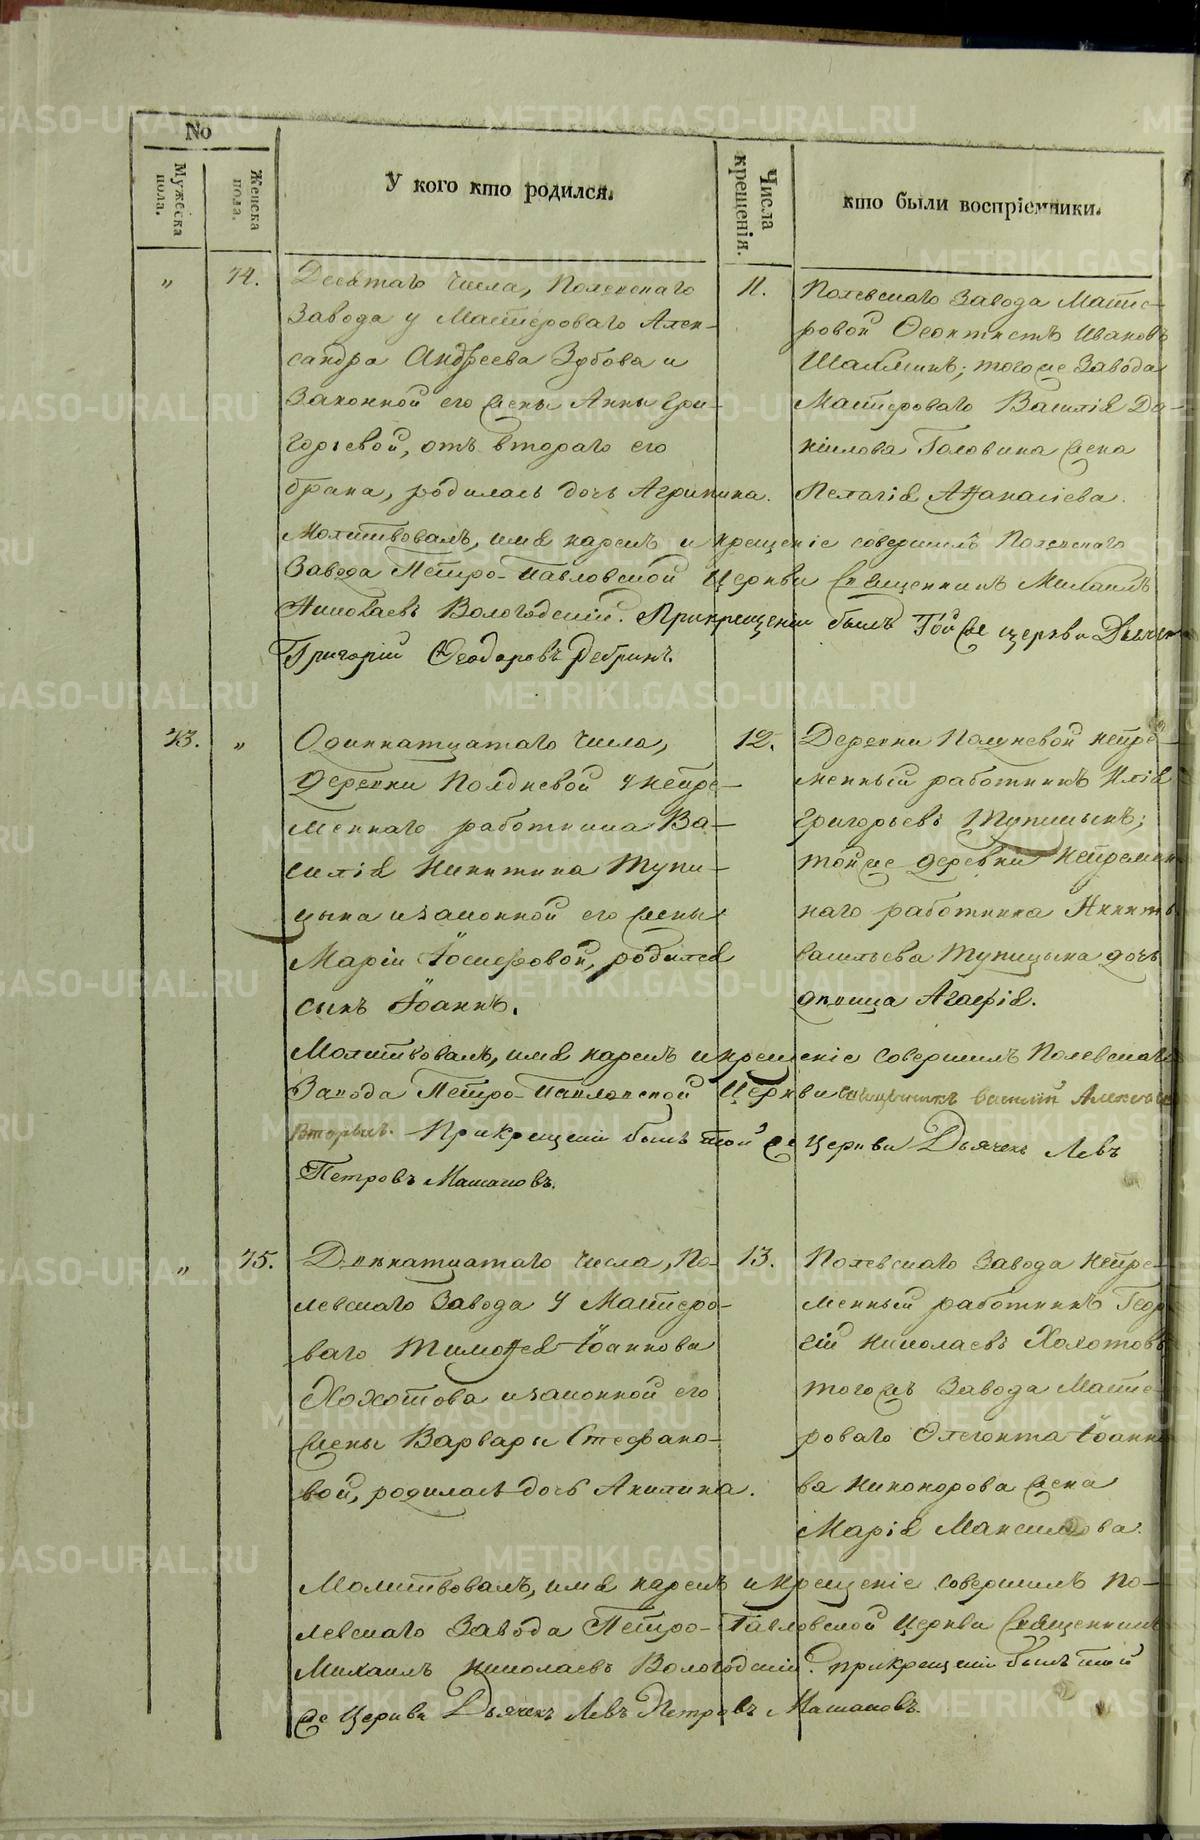 No
Мужеска пола.
Женска пола.
У кого кто родился.
Числа крещенія.
кто были воспріемники.
„ 74. Десятаго числа, Полевскаго
Завода у Мастероваго Алек-
сандра Андреева Зубова и
Законной его жены Анны Гри-
горьевой, отъ втораго его
брака, родилась дочь Агрипина.
11.
Полевскаго Завода Масте-
ровой Феоктистъ Ивановъ
тогоже Завода
Мастероваго Василія Да-
нилова Головина жена
Пелагія Аѳанасіева.
Молитвовалъ, имя нарекъ и крещеніе совершилъ Полевскаго
Завода Петро-Павловской Церкви Священникъ Михаилъ
Николаевъ Вологодскій. При крещеніи былъ Той же церкви Дьячекъ
Григорій Феодоровъ Ребринъ.
73. „ Одиннатцатаго числа,
деревни Полдневой у непре-
меннаго работника Ва-
силія Никитина Тупи-
цына и законной его жены
Маріи Іосифовой, родился
сынъ Іоаннъ.
12.
Деревни Полдневой непре-
менный работникъ Илія
Григорьевъ Тупицынъ;
тойже деревни непремен-
наго работника Никиты
Васильева Тупицына дочь
девица Агафія.
Молитвовалъ, имя нарекъ и крещеніе совершилъ Полевскаго
Завода Петро-Павловской Церкви священникъ Василій Алексеевъ
Вторыхъ. При крещеніи былъ той же Церкви Дьячекъ Левъ
Петровъ Машановъ.
„ 75. Двенатцатаго числа, По-
левскаго Завода у Мастеро-
ваго Тимоѳея Іоаннова
Хохотова и законной его
жены Варвары Стефано-
вой, родилась дочь Акилина.
13.
Полевскаго Завода непре-
менный работникъ Геор-
гій Николаевъ Хохотовъ
тогожъ Завода Масте-
роваго Флегонта Іоанно-
ва Никонорова жена
Марія Максимова.
Молитвовалъ, имя нарекъ и крещеніе совершилъ По-
левскаго Завода Петро-Павловской Церкви Священникъ
Михаилъ Николаевъ Вологодскій. При крещеніи былъ той
же Церкви Дьячекъ Левъ Петровъ Машановъ.
METRIKI.GASO-URAL.RU